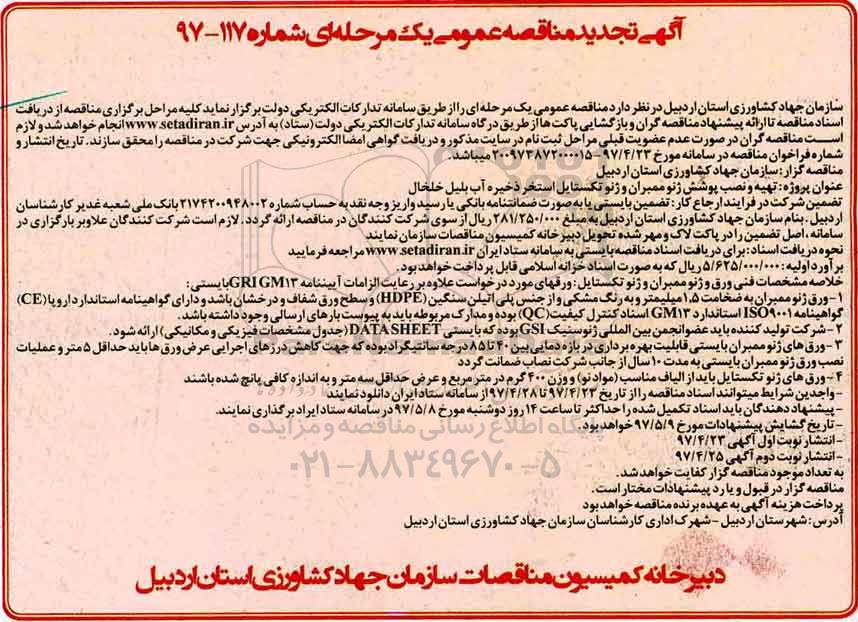 آگهی تجدید مناقصه عمومی یک مرحله‌ای شماره ۱۱۷-۹۷
سازمان جهاد کشاورزی استان اردبیل در نظر دارد مناقصه عمومی یک مرحله ای را از طریق سامانه تدارکات الکتریکی دولت برگزار نماید کلیه مراحل برگزاری مناقصه از دریافت
اسناد مناقصه تا ارائه پیشنهاد مناقصه گران و بازگشایی پاکت ها از طریق درگاه سامانه تدارکات الکتریکی دولت (ستاد) به آدرس www.setadiran.ir انجام خواهد شد و لازم
است مناقصه گران در صورت عدم عضویت قبلی مراحل ثبت نام در سایت مذکور و دریافت گواهی امضا الکترونیکی جهت شرکت در مناقصه را محقق سازند. تاریخ انتشار و
شماره فراخوان مناقصه در سامانه مورخ ۹۷/۴/۲۳ -۲۰۰۹۷۳۸۷۲۰۰۰۰۱۵ میباشد.
مناقصه گزار: سازمان جهاد کشاورزی استان اردبیل
عنوان پروژه: تهیه و نصب پوشش ژئو ممبران و ژئو تکستایل استخر ذخیره آب بلیل خلخال
تضمین شرکت در فرایند ارجاع کار: تضمین بایستی یا به صورت ضمانتنامه بانکی یا رسید واریز وجه نقد به حساب شماره ۲۱۷۴۲۰۰۹۴۸۰۰۲ بانک ملی شعبه غدیر کارشناسان
اردبیل. بنام سازمان جهاد کشاورزی استان اردبیل به مبلغ ۲۸۱/۲۵۰/۰۰۰ ریال از سوی شرکت کنندگان در مناقصه ارائه گردد. لازم است شرکت کنندگان علاوبر بارگزاری در
سامانه، اصل تضمین را در پاکت لاک و مهر شده تحویل دبیرخانه کمیسیون مناقصات سازمان نمایند
نحوه دریافت اسناد: برای دریافت اسناد مناقصه بایستی به سامانه ستاد ایران www.setadiran.ir مراجعه فرمایید
برآورد اولیه: ۵/۶۲۵/۰۰۰/۰۰۰ ریال که به صورت اسناد خزانه اسلامی قابل پرداخت خواهد بود.
خلاصه مشخصات فنی ورق و ژئو ممبران و ژئو تکستایل: ورقهای مورد درخواست علاوه بر رعایت الزامات آییننامه GRI GM۱۳ بایستی:
۱- ورق ژئو ممبران به ضخامت ۱.۵ میلیمتر و به رنگ مشکی و از جنس پلی اتیلن سنگین (HDPE) و سطح ورق شفاف و درخشان باشد و دارای گواهینامه استاندارد اروپا (CE)
گواهینامه ISO۹۰۰۱ استاندارد GM۱۳ اسناد کنترل کیفیت (QC) بوده و مدارک مربوطه باید به پیوست بارهای ارسالی وجود داشته باشد.
۲- شرکت تولید کننده باید عضو انجمن بین المللی ژئوسنتیک GSI بوده که بایستی DATA SHEET (جدول مشخصات فیزیکی و مکانیکی) ارائه شود.
۳- ورق های ژئو ممبران بایستی قابلیت بهره برداری در بازه دمایی بین ۴۰ تا ۸۵ درجه سانتیگراد بوده که جهت کاهش درزهای اجرایی عرض ورق ها باید حداقل ۵ متر و عملیات
نصب ورق ژئو ممبران بایستی به مدت ۱۰ سال از جانب شرکت نصاب ضمانت گردد
۴- ورق های ژئو تکستایل باید از الیاف مناسب (مواد نو) و وزن ۴۰۰ گرم در متر مربع و عرض حداقل سه متر و به اندازه کافی پانچ شده باشند
- واجدین شرایط میتوانند اسناد مناقصه را از تاریخ ۹۷/۴/۲۳ تا ۹۷/۴/۲۸ از سامانه ستاد ایران دانلود نمایند
- پیشنهاد دهندگان باید اسناد تکمیل شده را حداکثر تا ساعت ۱۴ روز دوشنبه مورخ ۹۷/۵/۸ در سامانه ستاد ایراد برگذاری نمایند.
- تاریخ گشایش پیشنهادات مورخ ۹۷/۵/۹ خواهد بود.
- انتشار نوبت اول آگهی ۹۷/۴/۲۳
- انتشار نوبت دوم آگهی ۹۷/۴/۲۵
به تعداد موجود مناقصه گزار کفایت خواهد شد.
مناقصه گزار در قبول و یا رد پیشنهادات مختار است.
پرداخت هزینه آگهی به عهده برنده مناقصه خواهد بود
آدرس: شهرستان اردبیل - شهرک اداری کارشناسان سازمان جهاد کشاورزی استان اردبیل
پایگاه اطلاع رسانی مناقصه و مزایده
۰۲۱-۸۸۳۴۹۶۷۰-۵
دبیرخانه کمیسیون مناقصات سازمان جهاد کشاورزی استان اردبیل